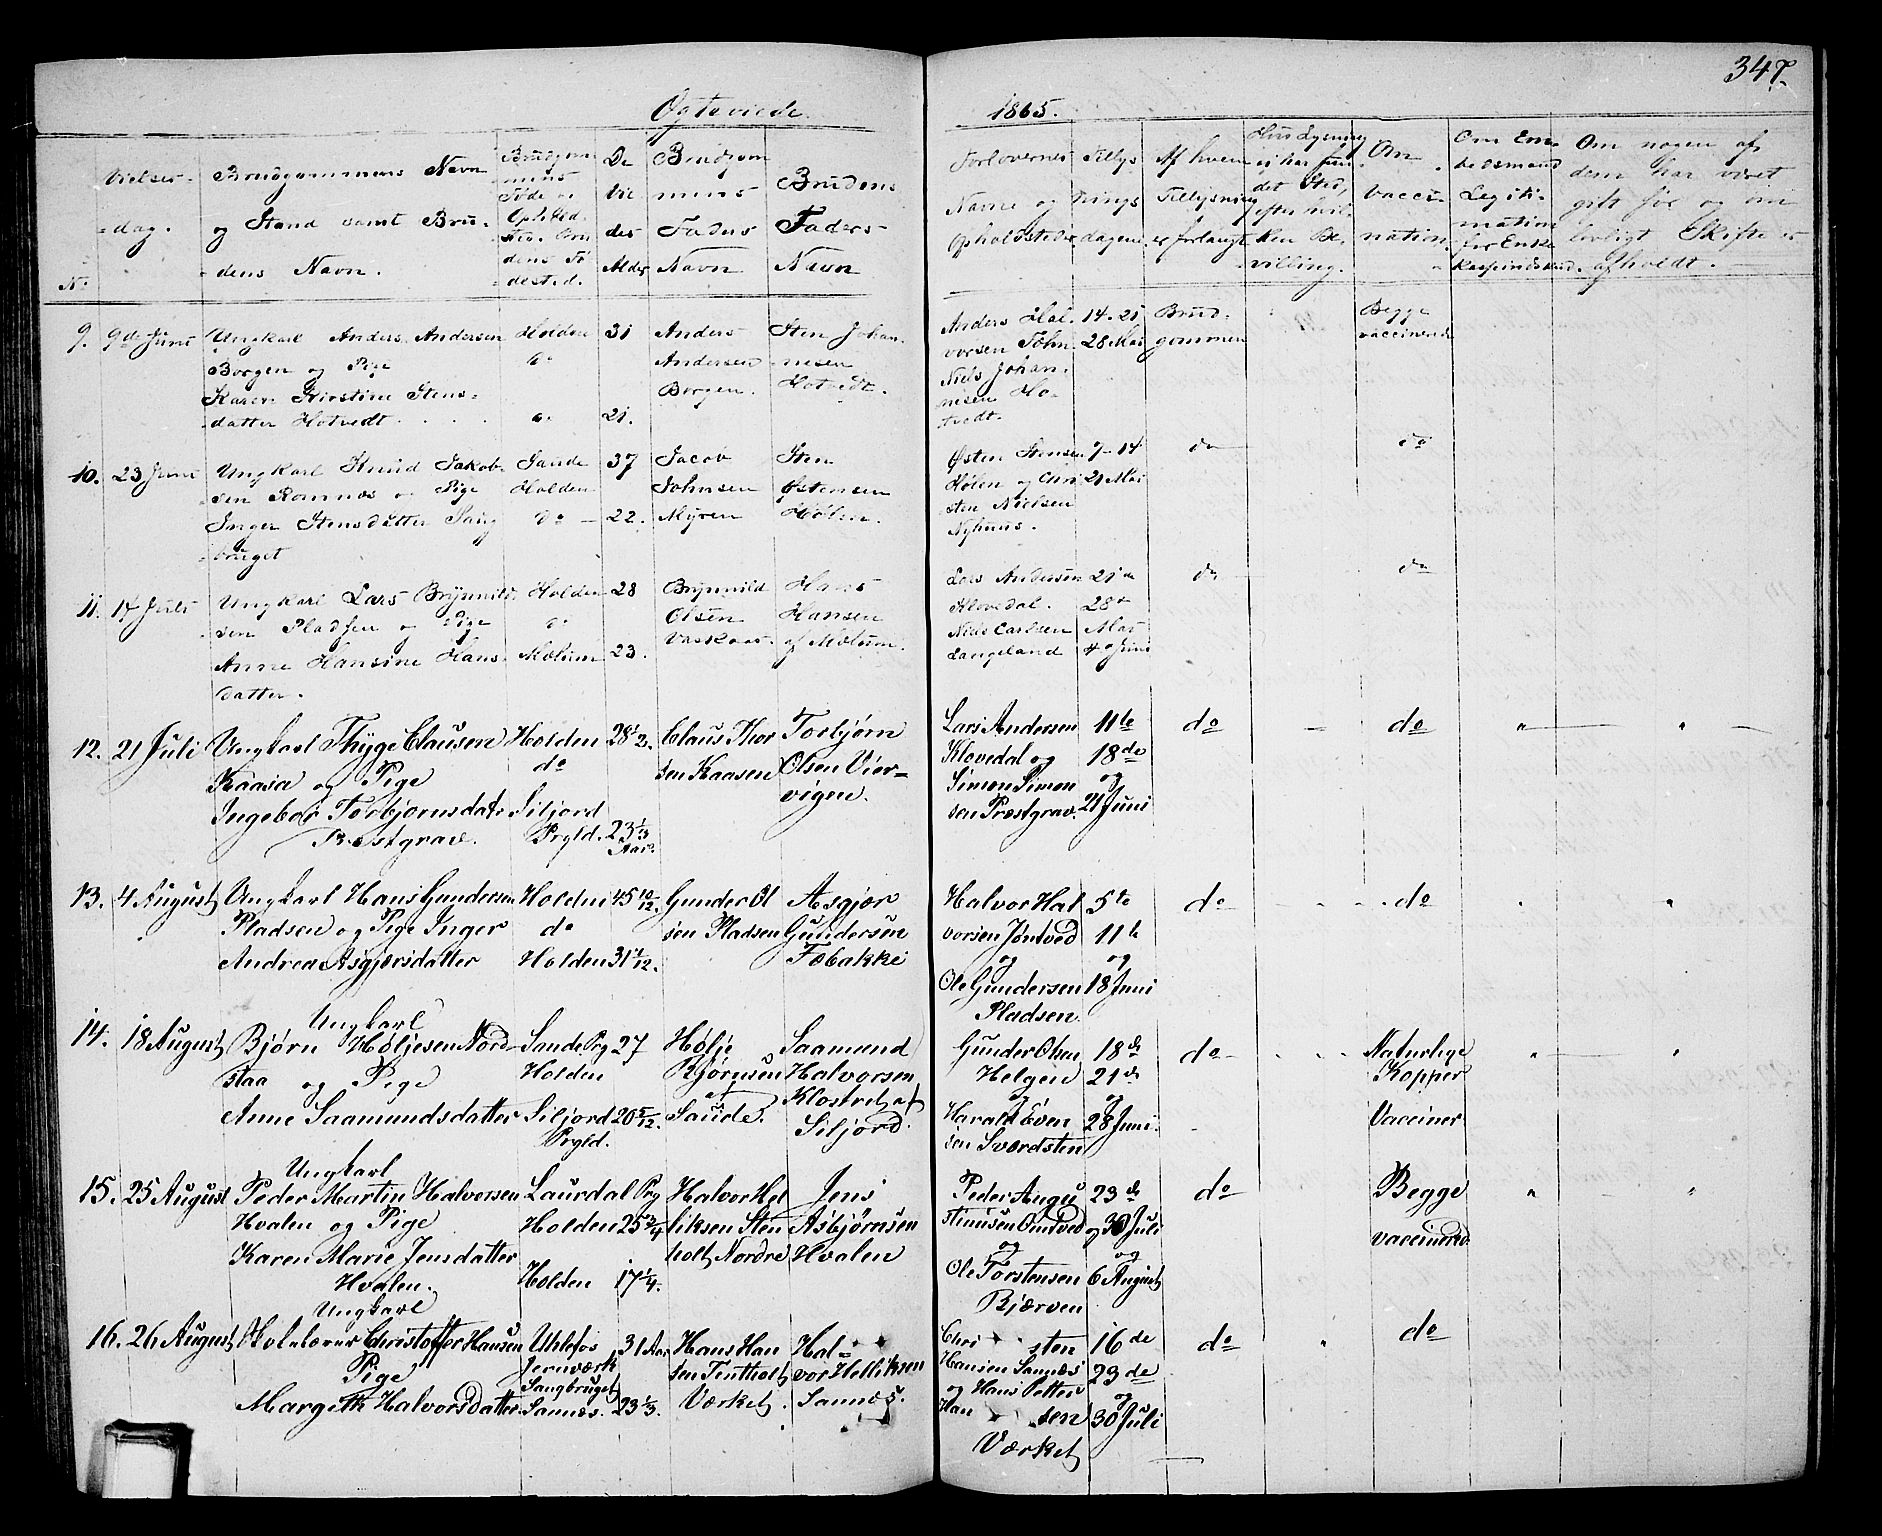 347.
Ægteviede. 1865.
N.
Vielses-
dag.
Brudgommens Navn
og Stand samt Bru-
dens Navn.
Brudgom-
mens
Føde og
Opholds
sted. Bru
dens Fø
dested.
De
Vie
des
Alder
Brudgom
mens
Faders
Navn
Brudens
Faders
Navn
Forlovernes
Navne og
Opholdssteder.
Tillys-
nings
dagene.
Af hvem
Tillysning
er forlangt
Hvis Lysning
ej har fun-
det Sted,
efter hvil-
ken Be-
villing.
Om
Vacci-
nation.
Om Em-
bedsmand
Legiti-
mation
for Enke
kassindskud.
Om nogen af
dem har været
gift før og om
lovligt Skifte er
afholdt.
9. 9de Juni
Ungkarl Anders Andersen
Borgen og Pige
Karen Kirstine Stens-
datter Hotvedt.
Holden
do
do
31
21.
Anders
Andersen
Borgen.
Sten Johan-
nesen
Hotvedt.
Anders Hal-
vorsen Tohn
Niels Johan-
nesen Ho-
tvedt.
14. 21
28 Mai
Brud-
gommen
Begge
vaccinerede
10. 23 Juni
Ungkarl Jakob-
sen Romnæs og Pige
Inger Stensdatter Saug
bruget
Sande
Holden
do
37
22.
Jacob
Johnsen
Myren
Sten
Østensen
Holen.
Østen Stensen
Holen og Chri
sten Nielsen
Nyhuus.
7-14
21 Mai
do
do
11. 14 Juli
Ungkarl Lars Brynnild-
sen Pladsen og Pige
Anne Hansine Hans-
datter.
Holden
do
Mælum
28
23.
Brynnild
Olsen
Vaskaas.
Hans
Hansen
af Mælum.
Lars Andersen
Klovedal.
Niels Carlsen
Langeland
21de
28de
Mai
4de Juni
do
do
12. 21 Juli
Ungkarl Thyge Clausen
Kaasa og Pige
Ingebor Torbjornsdatr
Præstgrav.
Holden
do
Siljord
Prgld.
28½
23⅓
Aar.
Claus Thor
sen Kaasen
Torbjørn
Olsen Vier-
vigen.
Lars Andersen
Klovedal og
Simon Simon
sen Præstgrav.
11te
18de
og
21 Juni
do
do
13. 4 August
Ungkarl Hans Gundersen
Pladsen og Pige Inger
Andrea Asgjærsdatter
Holden
do
Holden
45 10/12.
31 1/12.
Gunder Ol
sen Pladsen
Asgjær
Gundersen
Fæbakke
Halvor Hal
vorsen Jøntved
og
Ole Gundersen
Pladsen
5te
11te
og
18 Juni
do
do
14. 18 August
Ungkarl
Bjørn Høljesen Nord-
staa og Pige
Anne Saamundsdatter
Sande Prg
Holden
Siljord
Prgld.
27
20 5/12.
Hølje
Bjørnsen
af
Sande.
Saamund
Halvorsen
Klostret af
Siljord.
Gunder Olsen
Helgen
og
Harald Even
sen Sværdsten
18de
21de
og
28 Juni.
do
Naturlige
Kopper
Vacciner
15. 25 August
Ungkarl
Peder Martin Halvorsen
Hvalen og Pige
Karen Marie Jensdatter
Hvalen.
Laurdal Prg
Holden
Holden
25¾
17¼.
Halvor Hel
liksen Sten
holt Nordre
Jens
Asbjørnsen
Hvalen
Peder Augu
stinusen Omtved
og
Ole Torstensen
Bjærven
23de
og 30 Juli
og
6 August
do
Begge
vaccinered
16. 26 August
Ungkarl
Skolelærer Christoffer Hansen
Pige
Margith Halvorsdatter.
Uhlefos
Jernværk
Saugbruget
Sannæs.
31 Aar
23⅓.
Hans Han
sen Tentholt
Værket.
Hal-
vor Helliksen
Sannæs.
Chri sten
Hansen Sannæs
og Hans Petter
Han sen
Værket
16de
23de
og
30 Juli
do
do